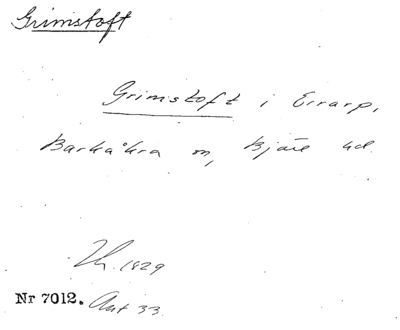 Grimstoft
Grimstoft i Errarp,
Barkåkra sn, Bjäre hd.
1829
Nr 7012. Ant 33